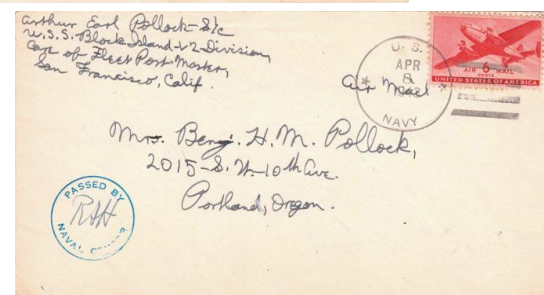 Arthur Earl Pollock-S1/c
U.S.S. Block Island-V-2-Division,
Care of Fleet Post Master,
San Francisco, Calif.
U.S.
APR
8
NAVY
Air Mail
AIR 6 MAIL
CENTS
UNITED STATES OF AMERICA
Mrs. Benj. H.M. Pollock,
2015-S.W-10th Ave.
Portland, Oregon.
PASSED BY
NAVAL CENSOR